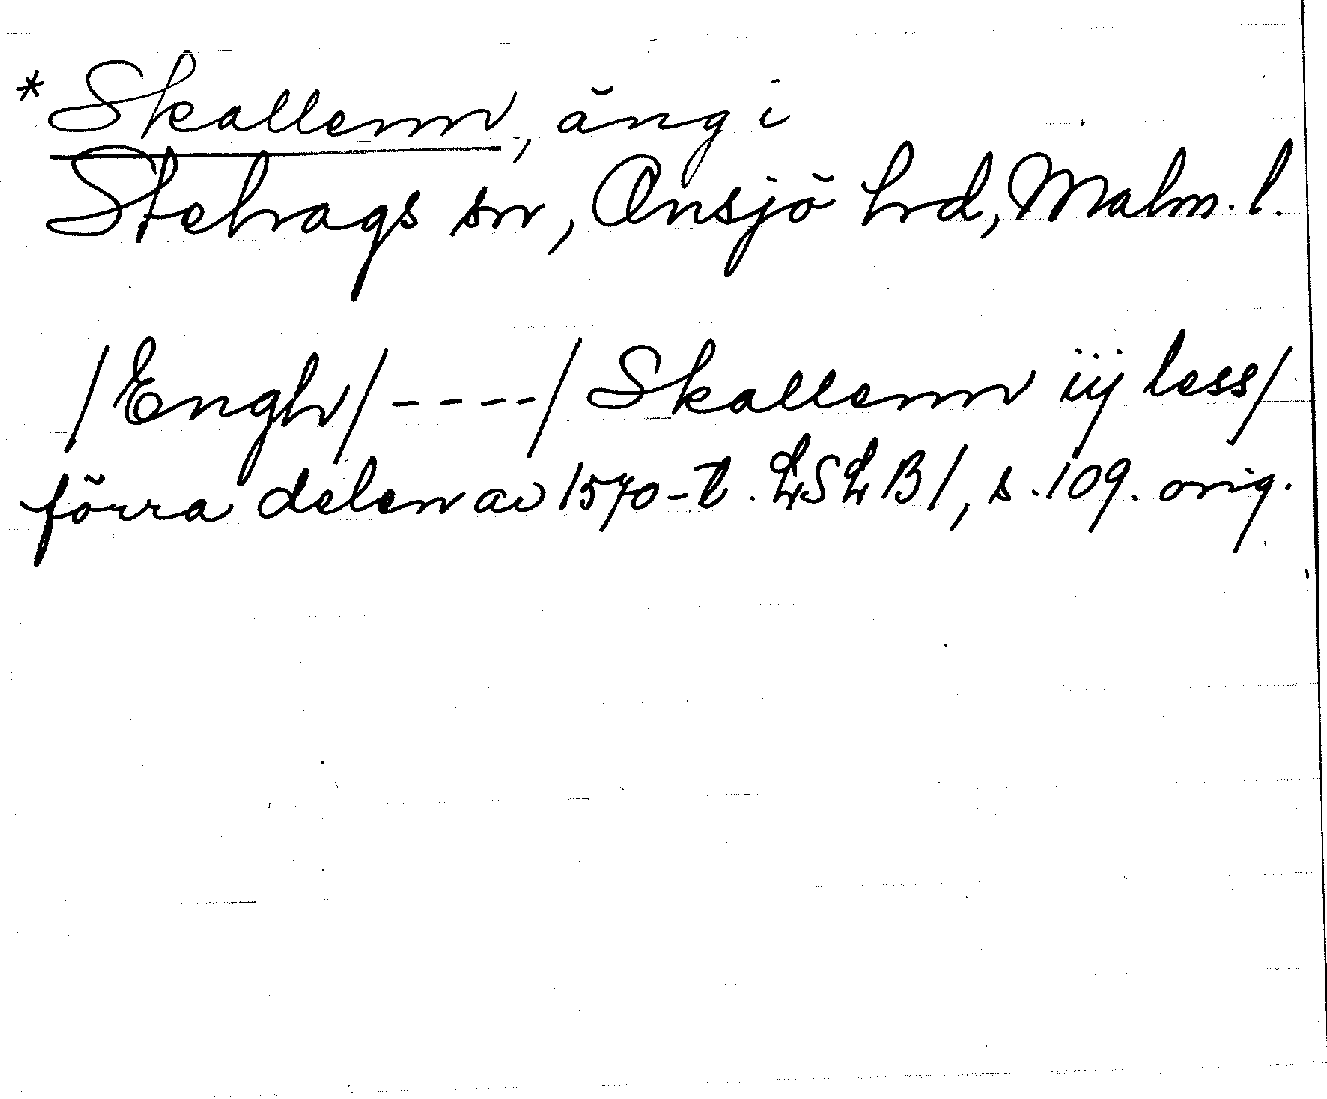 * Skallenn, äng i
Stehags sn, Onsjö hrd, Malm. l.
/Engh/----/Skallenn iij less/
förra delen av 1570-t. LSLB1, s. 109. orig.